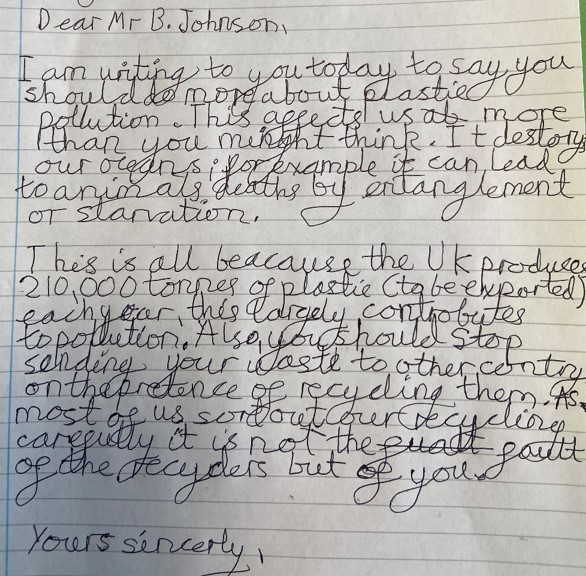 Dear Mr B. Johnson,
I am writing to you today to say you
should do more about plastic
pollution. This affects us all more
than you might think. It destorys
our oceans; for example it can lead
to animals deaths by entanglement
or starvation.
This is all beacause the UK produces
210,000 tonnes of plastic (to be exported)
each year, this largely contributes
to pollution. Also, you should stop
sending your waste to other contry
on the pretence of recycling them. As
most of us sort out our recycling
carefully it is not the fault
of the recyclers but of you.
Yours sincerly,